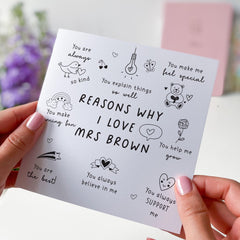 You are
always
so kind
You explain things
so well
You make me
feel special
REASONS WHY
I LOVE
MRS BROWN
You make
learning fun
You help me
grow
You are
the best!
You always
believe in me
You always
SUPPORT
me